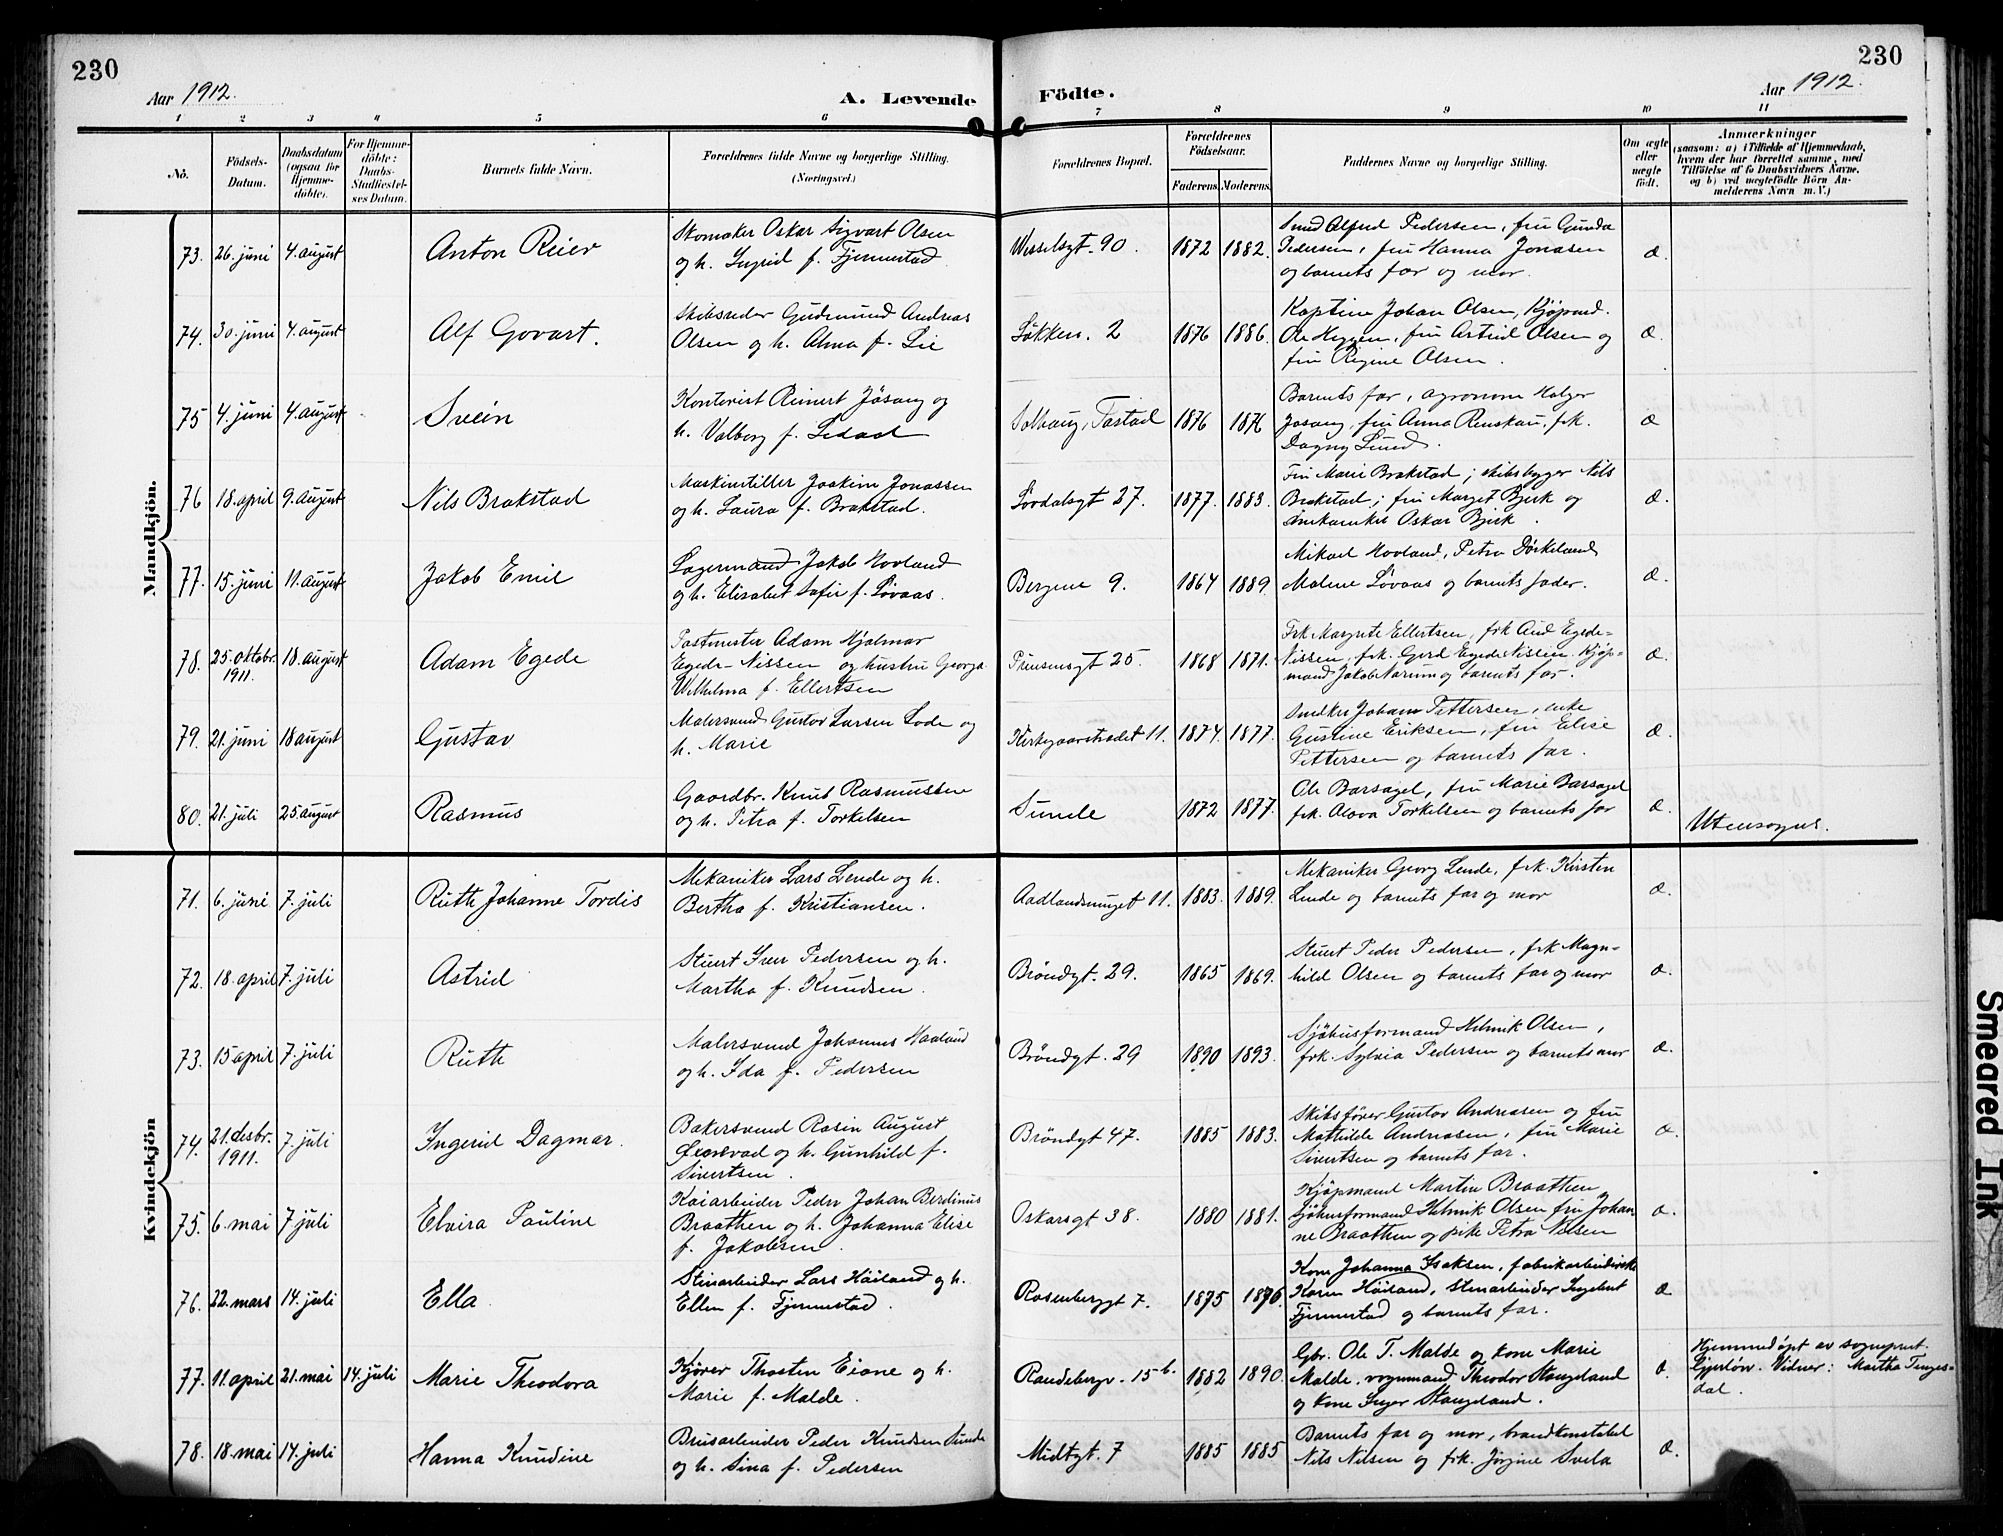 230
230
Aar 1912.
A. Levende
Födte.
Aar 1912.
1 2 3 4 5 6 7 8 9 10 11
No.
Födsels-
Datum.
Daabsdatum
(ogsaa for
Hjemme-
döbte).
For Hjemme-
döbte:
Daabs-
Stadfæstel-
ses Datum.
Barnets fulde Navn.
Forældrenes fulde Navne og borgerlige Stilling.
(Næringsvei.)
Forældrenes Bopæl.
Forældrenes
Födselsaar.
Faderens. Moderens.
Faddernes Navne og borgerlige Stilling.
Om ægte
eller
uægte
født.
Anmærkninger
(saasom: a) i Tilfælde af Hjemmedaab,
hvem der har forrettet samme, med
Tilföielse af to Daabsvidners Navne.
og b) ved uægtefödte Börn An-
melderens Navn m. V.)
Mandkjön.
73. 26. juni 4. august Anton Reier
Skomaker Oskar Sigvart Olsen
og h. Ingrid f. Fjermestad
Wesselsgt. 90. 1872 1882.
Smed Alfred Pedersen, fru Gunda
Pedersen, fru Hanna Jonasen
og barnets far og mor.
æ.
74. 30. juni 4. august Alf Govart.
Skibsreder Gudmund Andreas
Olsen og h. Alma f. Lie
Løkkev. 2 1876 1886.
Kaptein Johan Olsen, Kjøpmd.
Ole Heggen, fru Astrid Olsen og
fru Regine Olsen.
æ.
75 4. juni 4. august Svein
Kontorist Reinert Jøsang og
h. Valborg f.
Solhaug, Tastad 1876 1876
Barnets far, agronom Holger
Jøsang, fru Anna Renskau, frk.
Dagny Lund.
æ
76 18. april 9. august Nils Brakstad
Maskinstiller Joakim Jonassen
og h. Laura f. Brakstad.
Løvdalsgt 27. 1877. 1883.
Fru Marie Brakstad; skibsbygger Nils
Brakstad; fru Marget Bjerk og
mekaniker Oskar Bjerk.
æ.
77. 15. juni 11. august Jakob Emil
Lagermand Jakob Hovland
og h. Elisabet Sofie f. Løvaas.
Bergene 9. 1864 1889.
Mikael Hovland, Petra Dørkeland
Malene Løvaas og barnets fader.
æ.
78. 25. oktobr. 1911. 18. august Adam Egede
Postmester Adam Hjalmar
Egede-Nissen og hustru Georga
Wilhelma f. Ellertsen
Prinsensgt 25. 1868 1871.
Frk Margrete Ellertsen, frk Aud Egede-
Nissen, frk. Gerd Egede Nissen. Kjøp-
mand Jakob Narum og barnets far.
æ.
79. 21. juni 18 august Gustav
Malersvend Gustav Larsen Lode og
h. Marie
Kirkegaardstrædet 11. 1874. 1877.
Snedker Johan Pettersen, enke
Gustine Eriksen, fru Elise
Pettersen og barnets far.
æ.
80. 21. juli 25. august Rasmus
Gaardbr. Knut Rasmussen
og h. Petra f. Torkelsen
Sunde 1872 1877.
Ole Barsagel, fru Marie Barsagel
frk. Alova Torkelsen og barnets far
æ.
Utensogns.
Kvindekjön
71. 6. juni 7. juli Ruth Johanne Tordis
Mekaniker Lars Lende og h.
Bertha f. Kristiansen.
Aadlandsveiget 11. 1883. 1889.
Mekaniker Georg Lende, frk. Kirsten
Lende og barnets far og mor
æ.
72. 18. april 7. juli Astrid
Stuert Iver Pedersen og h.
Martha f. Knudsen.
Brøndgt. 29. 1865 1869.
Stuert Peder Pedersen, frk Magn-
hild Olsen og barnets far og mor
æ.
73. 15 april 7. juli Ruth
Malersvend Johannes Haaland
og h. Ida f. Pedersen
Brøndgt. 29 1890 1893.
Sjøhusformand Helmik Olsen,
frk. Sylvia Pedersen og barnets mor
æ.
74. 21. desbr. 1911. 7. juli Ingerid Dagmar.
Bakersvend Rasin August
og h. Gunhild f.
Sivertsen.
Brøndgt 47. 1885 1883.
Skibsfører Gustav Andreasen og fru
Mathilde Andreasen, fru Marie
Sivertsen og barnets far.
æ.
75. 6. mai 7 juli Elvira Pauline
Kaiarbeider Peder Johan Berdinus
Braathen og h. Johanna Elise
f. Jakobsen.
Oskarsgt 38. 1880 1881.
Kjøpmand Martin Braathen
sjøhusformand Helmik Olsen fru Johan
ne Braathen og pike Petra Nilsen
æ.
76. 22. mars 14. juli Ella
Stenarbeider Lars Høiland og h.
Ellen f. Fjermestad.
Rosenberggt 7. 1875 1876.
Kone Johanna Isaksen, fabrikarbeiderske
Karen Høiland, stenarbeider Ingebret
Fjermestad og barnets far.
æ
77. 11. april 21. mai 14. juli Marie Theodora
Kjører Thorsten Eiane og h.
Marie f. Malde.
Randebergv. 15 b. 1882 1890.
Gbr. Ole T. Malde og kone Marie
Malde, vognmand Theodor Stangeland
og kone Inger Stangeland.
æ.
Hjemmedøpt av sogneprest
Gjerløv. Vidner: Martha Tenges-
dal.
78. 18. mai 14. juli Hanna Knudine
Brusarbeider Peder Knudsen Sunde
og h. Sina f. Pedersen
Midtgt. 7 1885 1885
Barnets far og mor, brandkonstabel
Nils Nilsen og frk. Jørgine Svela
æ.
Smeared Ink